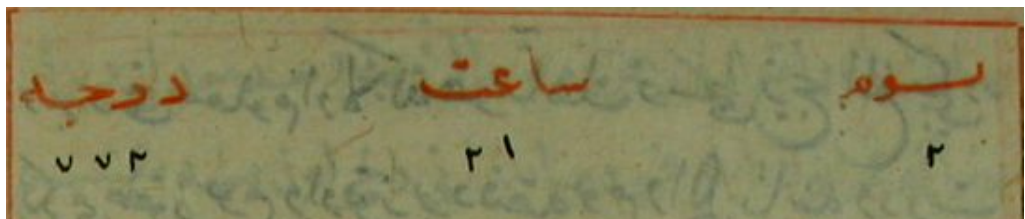 يوم ساعت درجه
٢ ٢١ ٧٧٢